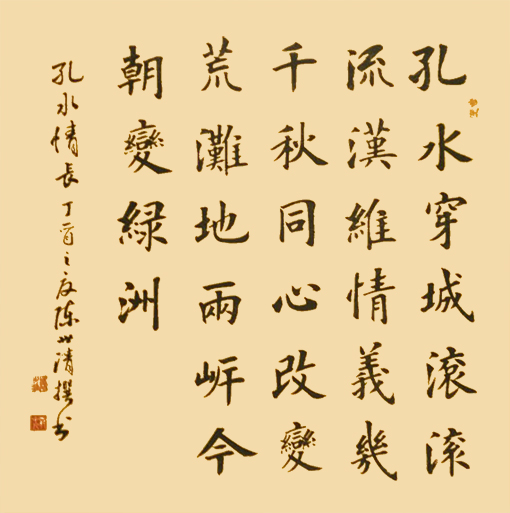 孔水穿城滚滚
流漢維情義幾
千秋同心改變
荒灘地兩岍今
朝變緑洲
孔水情長丁酉之夏陈世清撰书